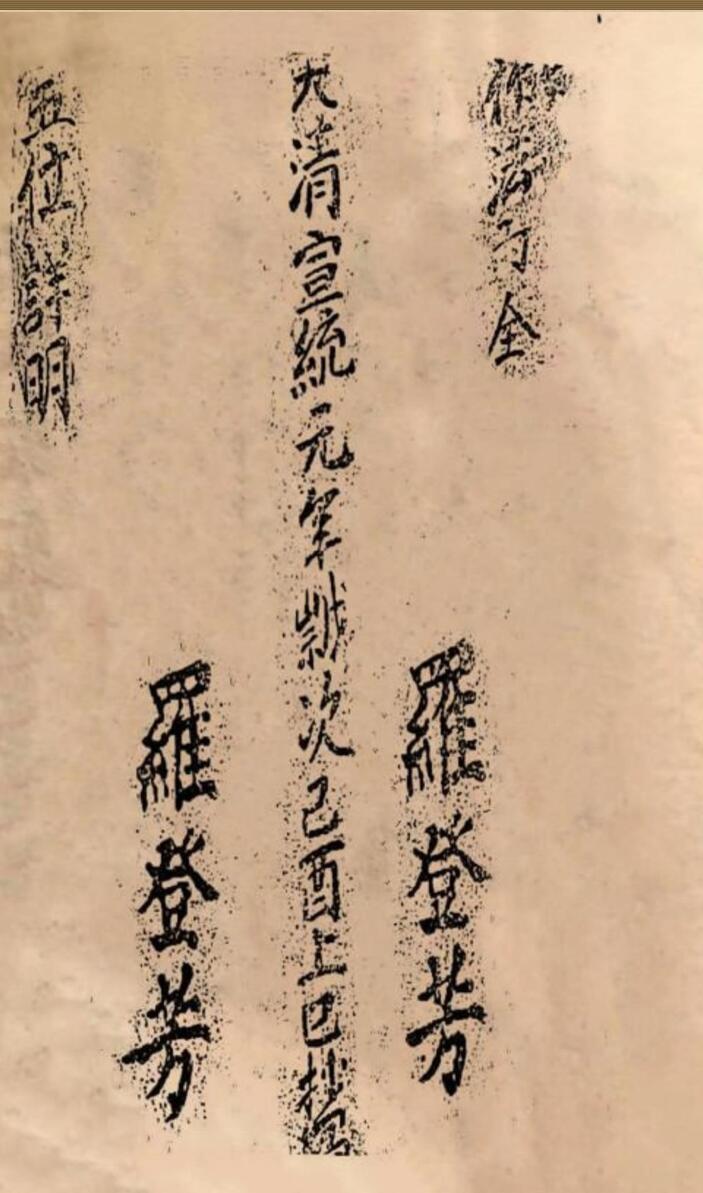 法全
羅登芳
大清宣統元年歲次己酉上巳抄寫
羅登芳
五位詳明